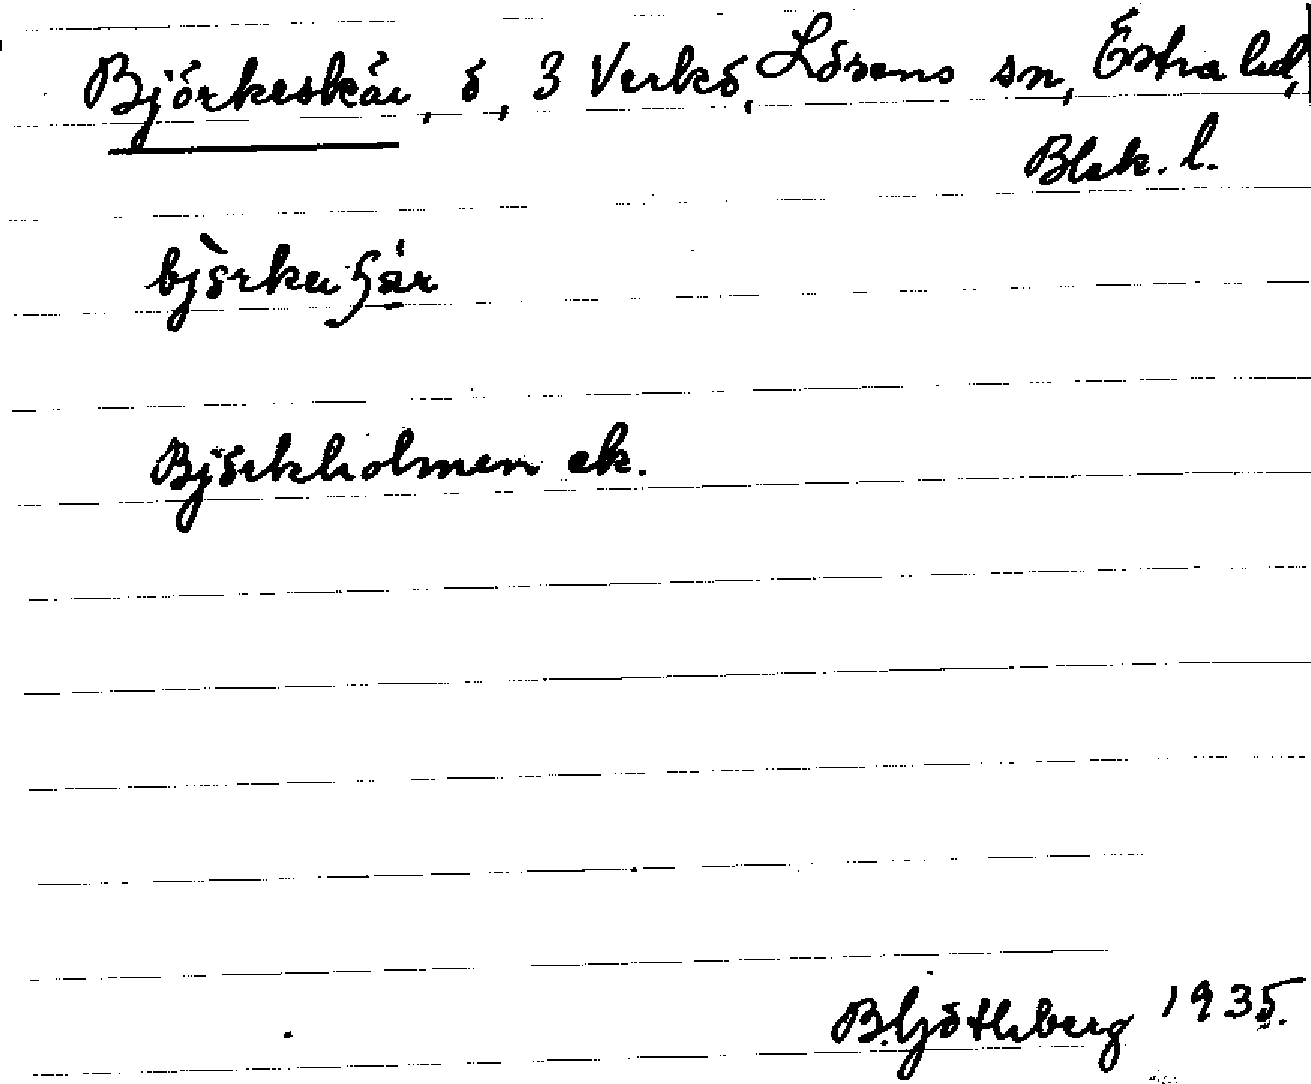 Björkeskär, ö, 3 Verkö, Lösens sn, Östra hd,
Blek. l.
Björkholmen ek.
B. Göthberg 1935.